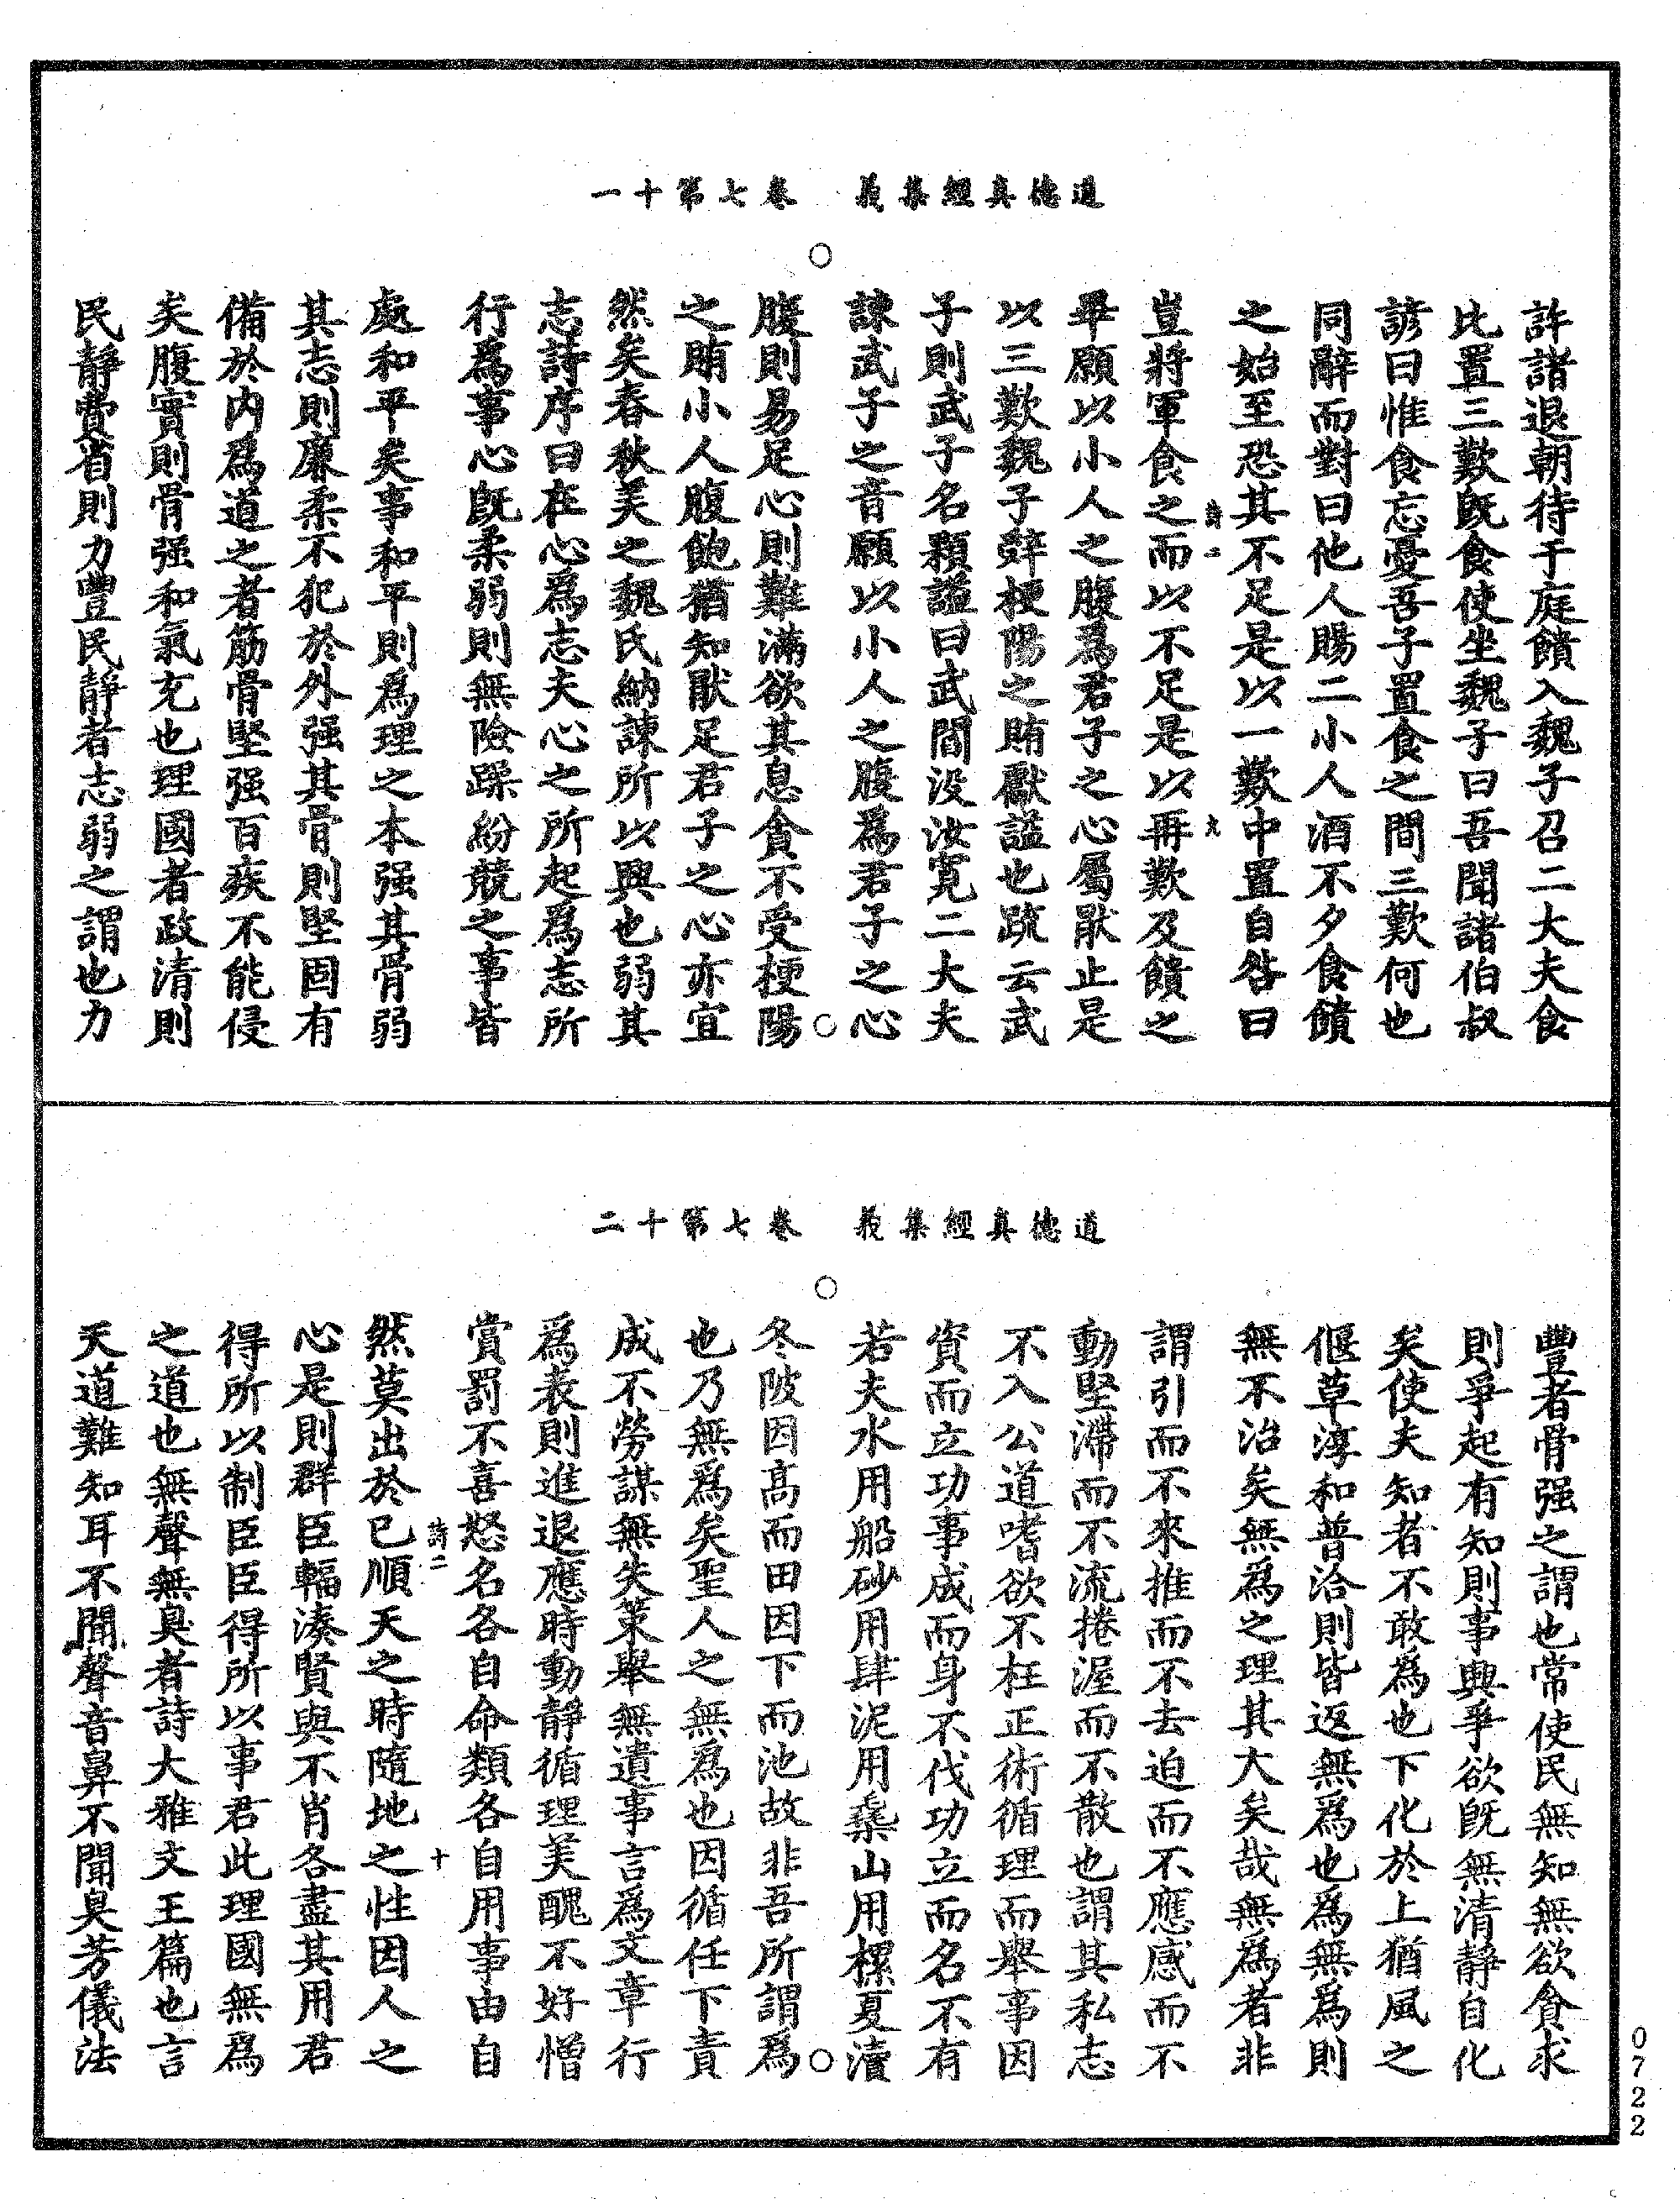 道德真經集義　卷七第十一
許諸退朝待于庭饋入魏子召二大夫食
比置三歎既食使坐魏子曰吾聞諸伯叔
諺曰惟食忘憂吾子置食之間三歎何也
同辭而對曰他人賜二小人酒不夕食饋
之始至恐其不足是以一歎中置自咎曰
詩二　九
豈將軍食之而以不足是以再歎及饋之
畢願以小人之腹爲君子之心屬猒止是
以三歎魏子辤梗陽之賄獻謚也䟽云武
子則武子名顆謚曰武閻没汝寬二大夫
諫武子之音願以小人之腹爲君子之心
腹則易足心則難滿欲其息貪不受梗陽
之賄小人腹飽猶知猒足君子之心亦宜
然矣春秋美之魏氏納諫所以興也弱其
志詩序曰在心爲志夫心之所起爲志志所
行爲事心既柔弱則無險躁紛競之事皆
處和平矣事和平則爲理之本强其骨弱
其志則廉柔不犯於外强其骨則堅固有
備於内爲道之者筋骨堅强百疾不能侵
矣腹實則骨强和氣充也理國者政清則
民靜費省則力豐民靜者志弱之謂也力
道德真經集義　卷七第十二
豐者骨强之謂也常使民無知無欲貪求
則爭起有知則事興爭欲既無清靜自化
矣使夫知者不敢爲也下化於上猶風之
偃草淳和普洽則皆返無爲也爲無爲則
無不治矣無爲之理其大矣哉無爲者非
謂引而不來推而不去迫而不應感而不
動堅滯而不流捲渥而不散也謂其私志
不入公道嗜欲不枉正術循理而舉事因
資而立功事成而身不伐功立而名不有
若夫水用船砂用肆泥用橇山用樏夏瀆
冬陂因髙而田因下而池故非吾所謂爲
也乃無爲矣聖人之無爲也因循任下責
成不勞謀無失策舉無遺事言爲文章行
爲表則進退應時動靜循理美醜不好憎
賞罰不喜怒名各自命類各自用事由自
詩二　十
然莫出於已順天之時隨地之性因人之
心是則群臣輻湊賢與不肖各盡其用君
得所以制臣臣得所以事君此理國無爲
之道也無聲無臭者詩大雅文王篇也言
天道難知耳不聞聲音鼻不聞臭芳儀法
0722